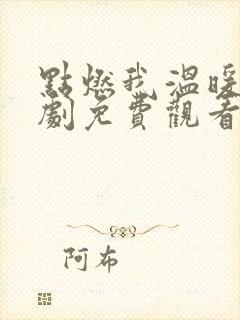 點燃我溫暖
劇免費觀看
阿布